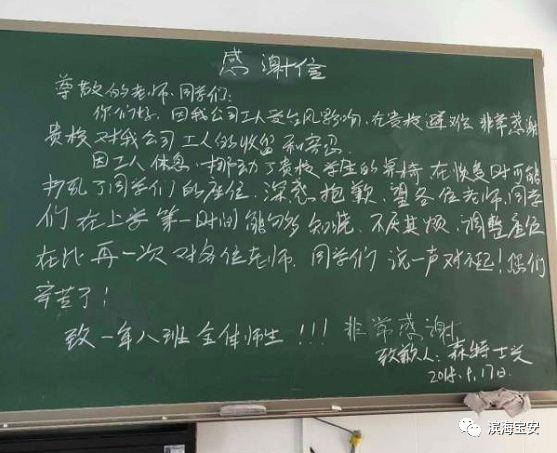 感谢信
尊敬的老师、同学们:
你们好,因我公司工人受台风影响,在贵校避难 非常感谢
贵校对我公司工人的收留和
因工人休息,挪动了贵校学生的桌椅在恢复时可能
打乱了同学们的座位,深感抱歉,望各位老师、同学
们在上学第一时间能够 不厌其烦,调整座位
在此再一次对各位老师、同学们说一声对不起!您们
辛苦了!
致一年八班全体师生!!!非常感谢
致歉人:森特士兴
2018.9.17日
滨海宝安